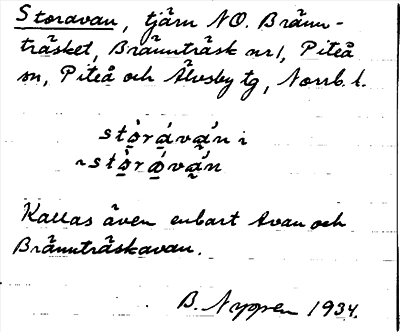 Storavan, tjärn NO. Bränn-
träsket, Brännträsk nr 1, Piteå
sn, Piteå och Älvsby tg, Norrb. l.
stòráván i
~stòrǿván
Kallas även enbart Avan och
Brännträskavan.
B. Nygren 1934.